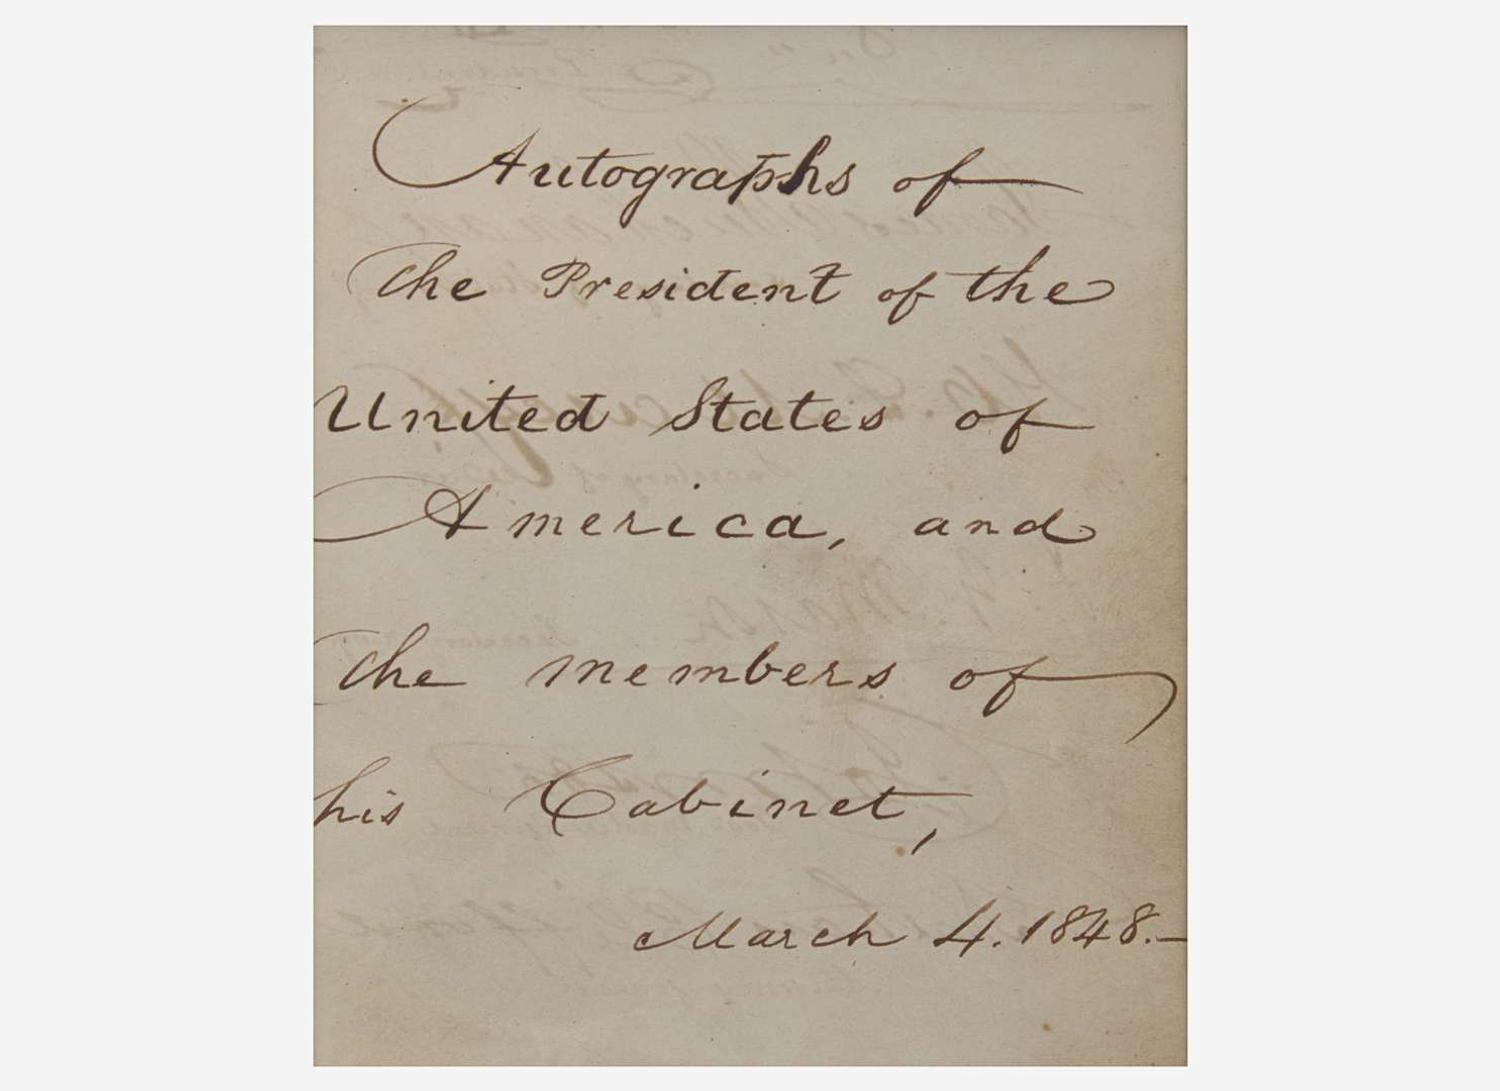 Autographs of
the President of the
United States of
America, and
the members of
his Cabinet,
March 4. 1848.—